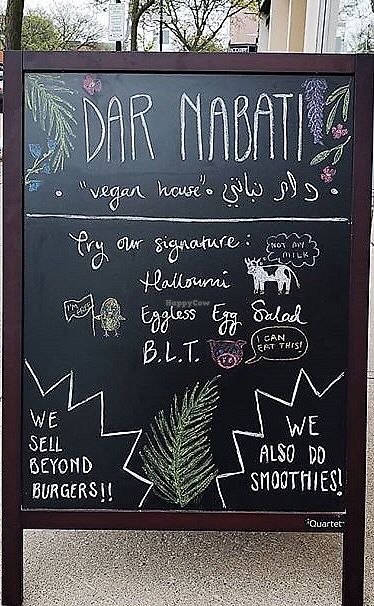 DAR NABATI
"vegan house" • دار نباتي •
Try our signature:
NOT MY
MILK
Halloumi
I'M FREE
HappyCow
Eggless Egg Salad
B.L.T.
I CAN
EAT THIS!
WE
SELL
BEYOND
BURGERS!!
WE
ALSO DO
SMOOTHIES!
Quartet